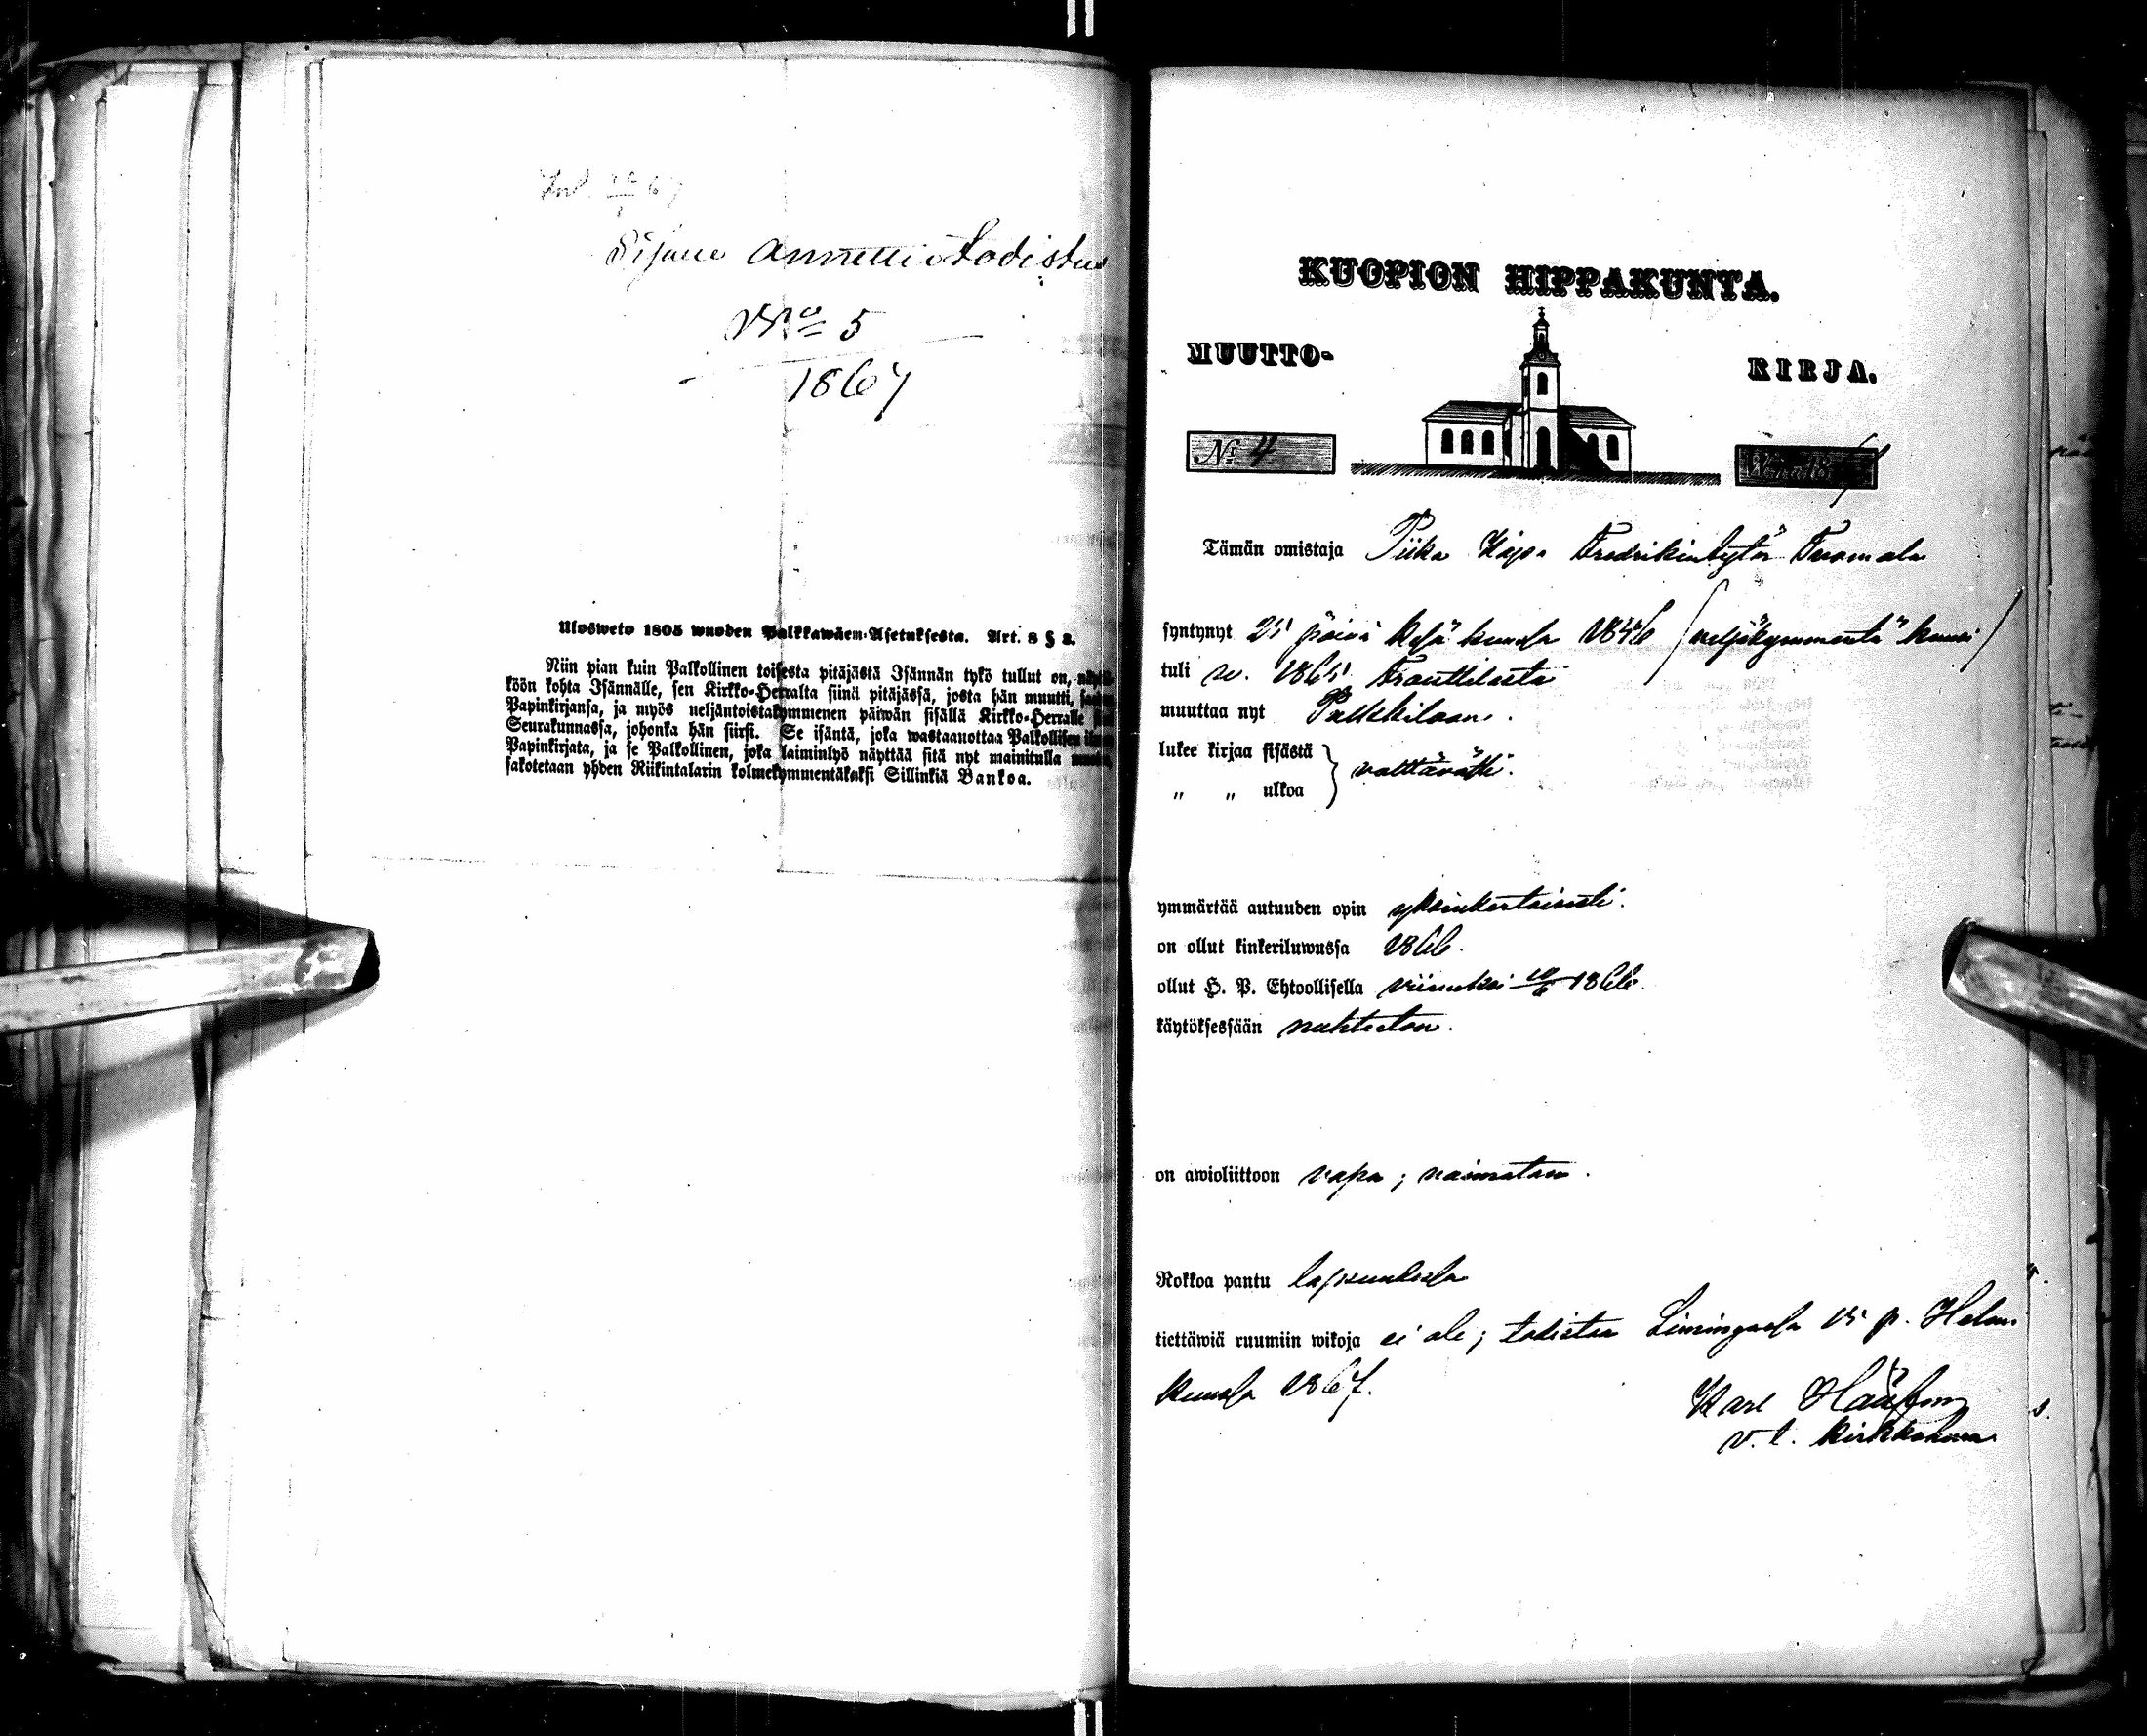 Annettu todistus
No 5
1867
Ulosweto 1805 wuoden Palkkawäen-Asetuksesta. Art. 8 § 2.
Niin pian kuin Palkollinen toisesta pitäjästä Isännän tykö tullut on,
köön kohta Isännälle, sen Kirkko-Herralta siinä pitäjässä, josta hän muutti,
Papinkirjansa, ja myös neljäntoistakymmenen päiwän sisällä Kirkko-Herralle
Seurakunnassa, johonka hän siirsi. Se isäntä, joka wastaanottaa Palkollisen
Papinkirjata, ja se Palkollinen, joka laiminlyö näyttää sitä nyt mainitulla
sakotetaan yhden Riikintalarin kolmekymmentäkaksi Sillinkiä Bankoa.
KUOPION HIPPAKUNTA.
MUUTTO-
KIRJA.
No 4
Tämän omistaja Piika Fredrikintytär
syntynyt 25 päivä Kesä kuussa 1846 (neljäkymmentä kuusi)
tuli w. 1865 Franttilasta
muuttaa nyt Pulkkilaan.
lukee kirjaa sisästä } välttävästi.
„ „ ulkoa
ymmärtää autuuden opin yksinkertaisesti.
on ollut kinkeriluwussa 1866.
ollut H. P. Ehtoollisella viimeksi 1866.
käytöksessään nuhteeton.
on awioliittoon vapa; naimaton.
Rokkoa pantu lapsuudessa
tiettäwiä ruumiin wikoja ei ole; todistaa Limingassa p. Helmi
kuussa 1867.
Karl
v. t. kirkkoherra